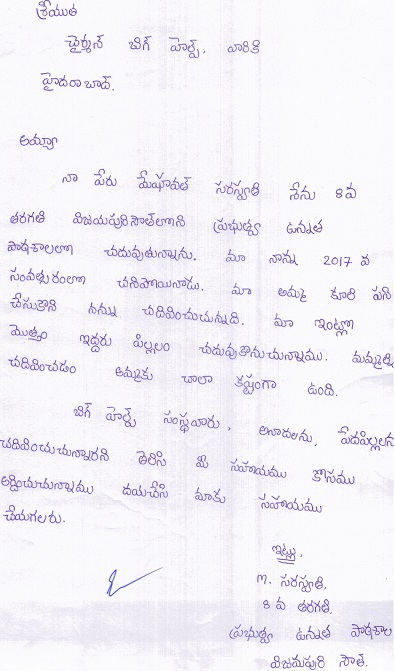 శ్రీయుత
చైర్మన్ బిగ్ హెల్ప్. వారికి
హైదరాబాద్.
అమ్మా
నా పేరు మేఘావత్ సరస్వతి నేను 8వ
తరగతి విజయపురిసౌత్‌లోని ప్రభుత్వ ఉన్నత
పాఠశాలలో చదువుతున్నాను. మా నాన్న 2017 వ
సంవత్సరంలో చనిపోయినాడు. మా అమ్మ కూలి పని
చేసుకొని నన్ను చదివించుచున్నది. మా ఇంట్లో
మొత్తం ఇద్దరు పిల్లలం చదువుకొనుచున్నాము. మమ్మల్ని
చదివించడం అమ్మకు చాలా కష్టంగా ఉంది.
బిగ్ హెల్ప్ సంస్థవారు, అనాదలను, పేదపిల్లలను
చదివించుచున్నారని తెలిసి మీ సహాయము కోసము
అర్దించుచున్నాము దయచేసి మాకు సహాయము
చేయగలరు.
ఇట్లు,
m. సరస్వతి.
8 వ తరగతి.
ప్రభుత్వ ఉన్నత పాఠశాల
విజయపురి సౌత్.